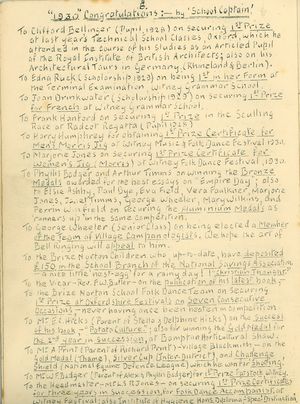 "1930" Congratulations:— by 'School Captain'
To Clifford Bellinger (Pupil, 1928) on securing 1st Prize
at last years Technical School Classes, Oxford, which he
attended in the course of his studies as an Articled Pupil
of the Royal Institute of British Architects; also his
Architectural Tours in Germany (Rhineland & Berlin).
To Edna Ruck (Scholarship 1929) on being 1st in her Form at
the Terminal Examination Witney Grammar School
To Joan Drinkwater (Scholarship 1929) on securing 1st Prize
for French at Witney Grammar School.
To Frank Hanford on securing 1st Prize in the Sculling
Race at Radcot Regatta
To Harry Humphrey for obtaining 1st Prize Certificate for
Men's Morris Jig at Witney Music & Folk Dance Festival 1930.
To Marjorie Jones on securing 1st Prize Certificate for
Women's Jig (Morris) at Witney Folk Dance Festival, 1930.
To Phyllis Badger and Arthur Timms on winning the Bronze
Medals awarded for the best essays on "Empire Day"; also
to Elsie Bixby, Paul Dye, Eva Field, Vera Faulkner, Marjorie
Jones, Juliet Timms, George Wheeler, Mary Wilkins, and
Perrin Winfield on securing the Aluminium Medals as
runners up in the same competition.
To George Wheeler (Senior Class) on being elected a Member
of the Team of Village Campanologists. We hope the art of
Bell Ringing will appeal to him.
To the Brize Norton Children who, up-to-date, have deposited
£150 in the School Branch of the National Savings Association
— a nice little "nest-egg" for a rainy day!
To the Vicar – Rev. P.W. Butler – on the publication of his latest book,
To the Brize Norton School Folk Dance Team on Securing
1st Prize at Oxfordshire Festivals on Seven Consecutive
Occasions – never having once been beaten in competition
To Mr. E. Hicks (Parent of Stella & Delphine Hicks) on the Success
of his book – "Potato Culture"; also for winning the Gold Medal for
the 2nd year in succession, at Bampton Horticultural Show.
To Mr. A. Print (Parent of Richard Print) – village Blacksmith – on the
Gold Medal (Thame), Silver Cup (Inter-District), and Challenge
Shield (National Equine Defence League) which he won for Shoeing.
To Mr. J. Badger (Parent of Alex & Phyllis Badger) for 1st Prize
To the Headmaster – Mr. L.S.R. Jones – on securing 1st Prize Certificates
for three years in succession, for Folk Dance Accompanist at
Witney Festival; also Institute of Hygiene